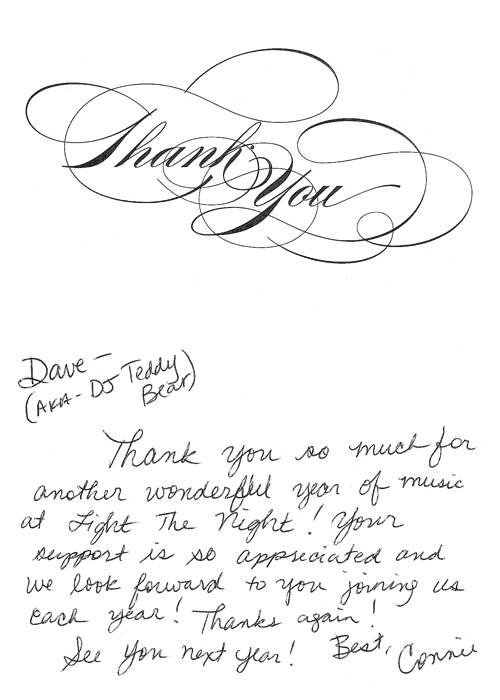 Thank You
Dave -
(AKA - DJ Teddy
Bear)
Thank you so much for
another wonderful year of music
at Light The Night! Your
support is so appreciated and
we look forward to you joining us
each year! Thanks again!
See you next year! Best, Connie